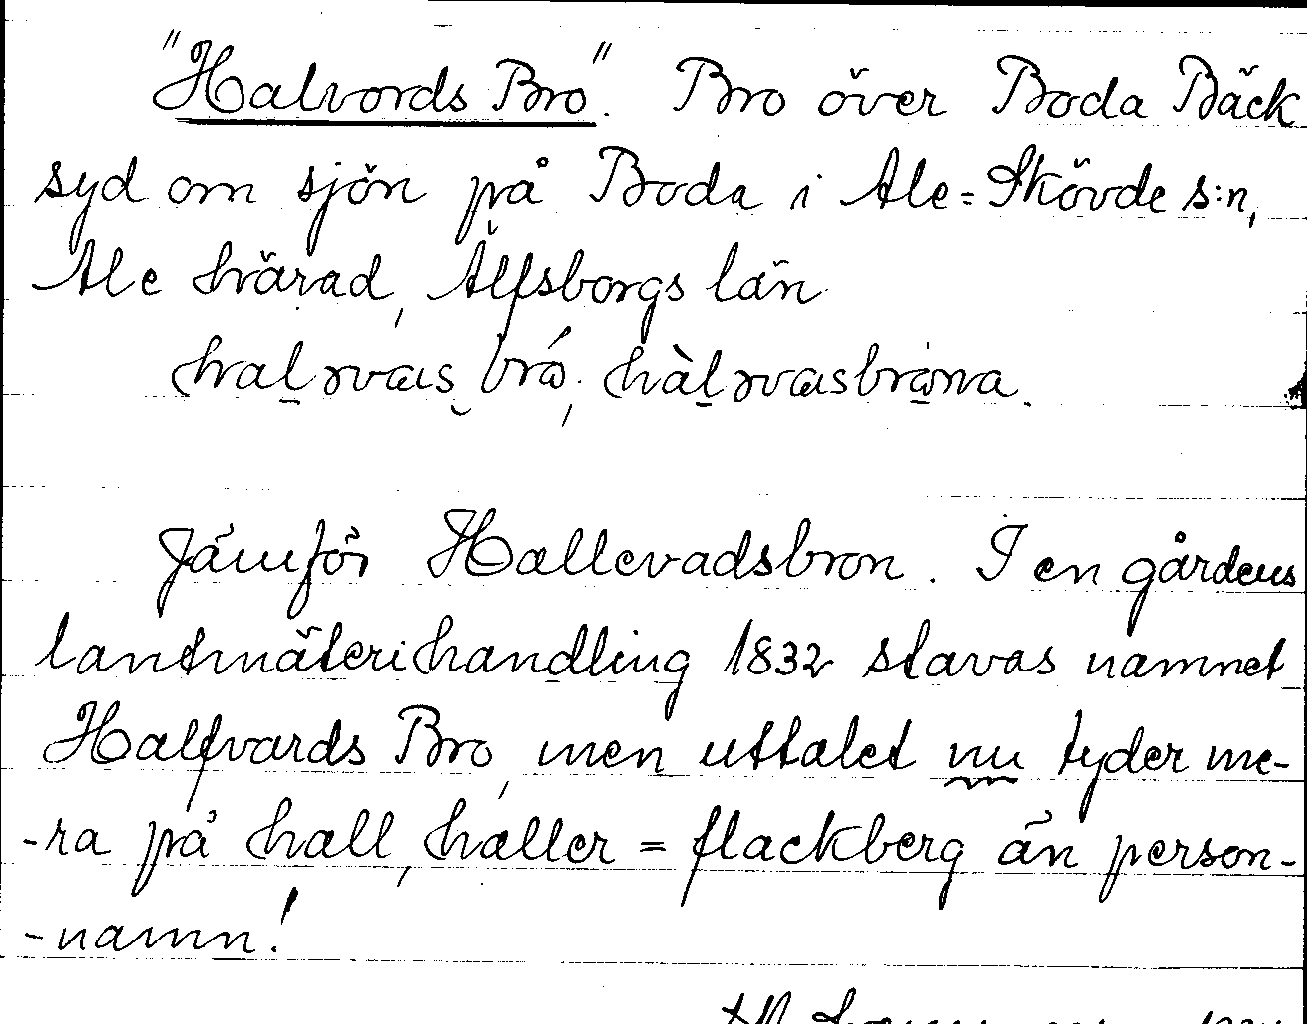 "Halvords Bro". Bro över Boda Bäck
syd om sjön på Boda i Ale=Skövde s:n,
Ale härad, Älfsborgs län
Jämför Hallevadsbron. I en gårdens
lantmäterihandling 1832 stavas namnet
Halfvards Bro, men uttalet nu tyder me-
-ra på hall, haller = flackberg än person-
-namn!